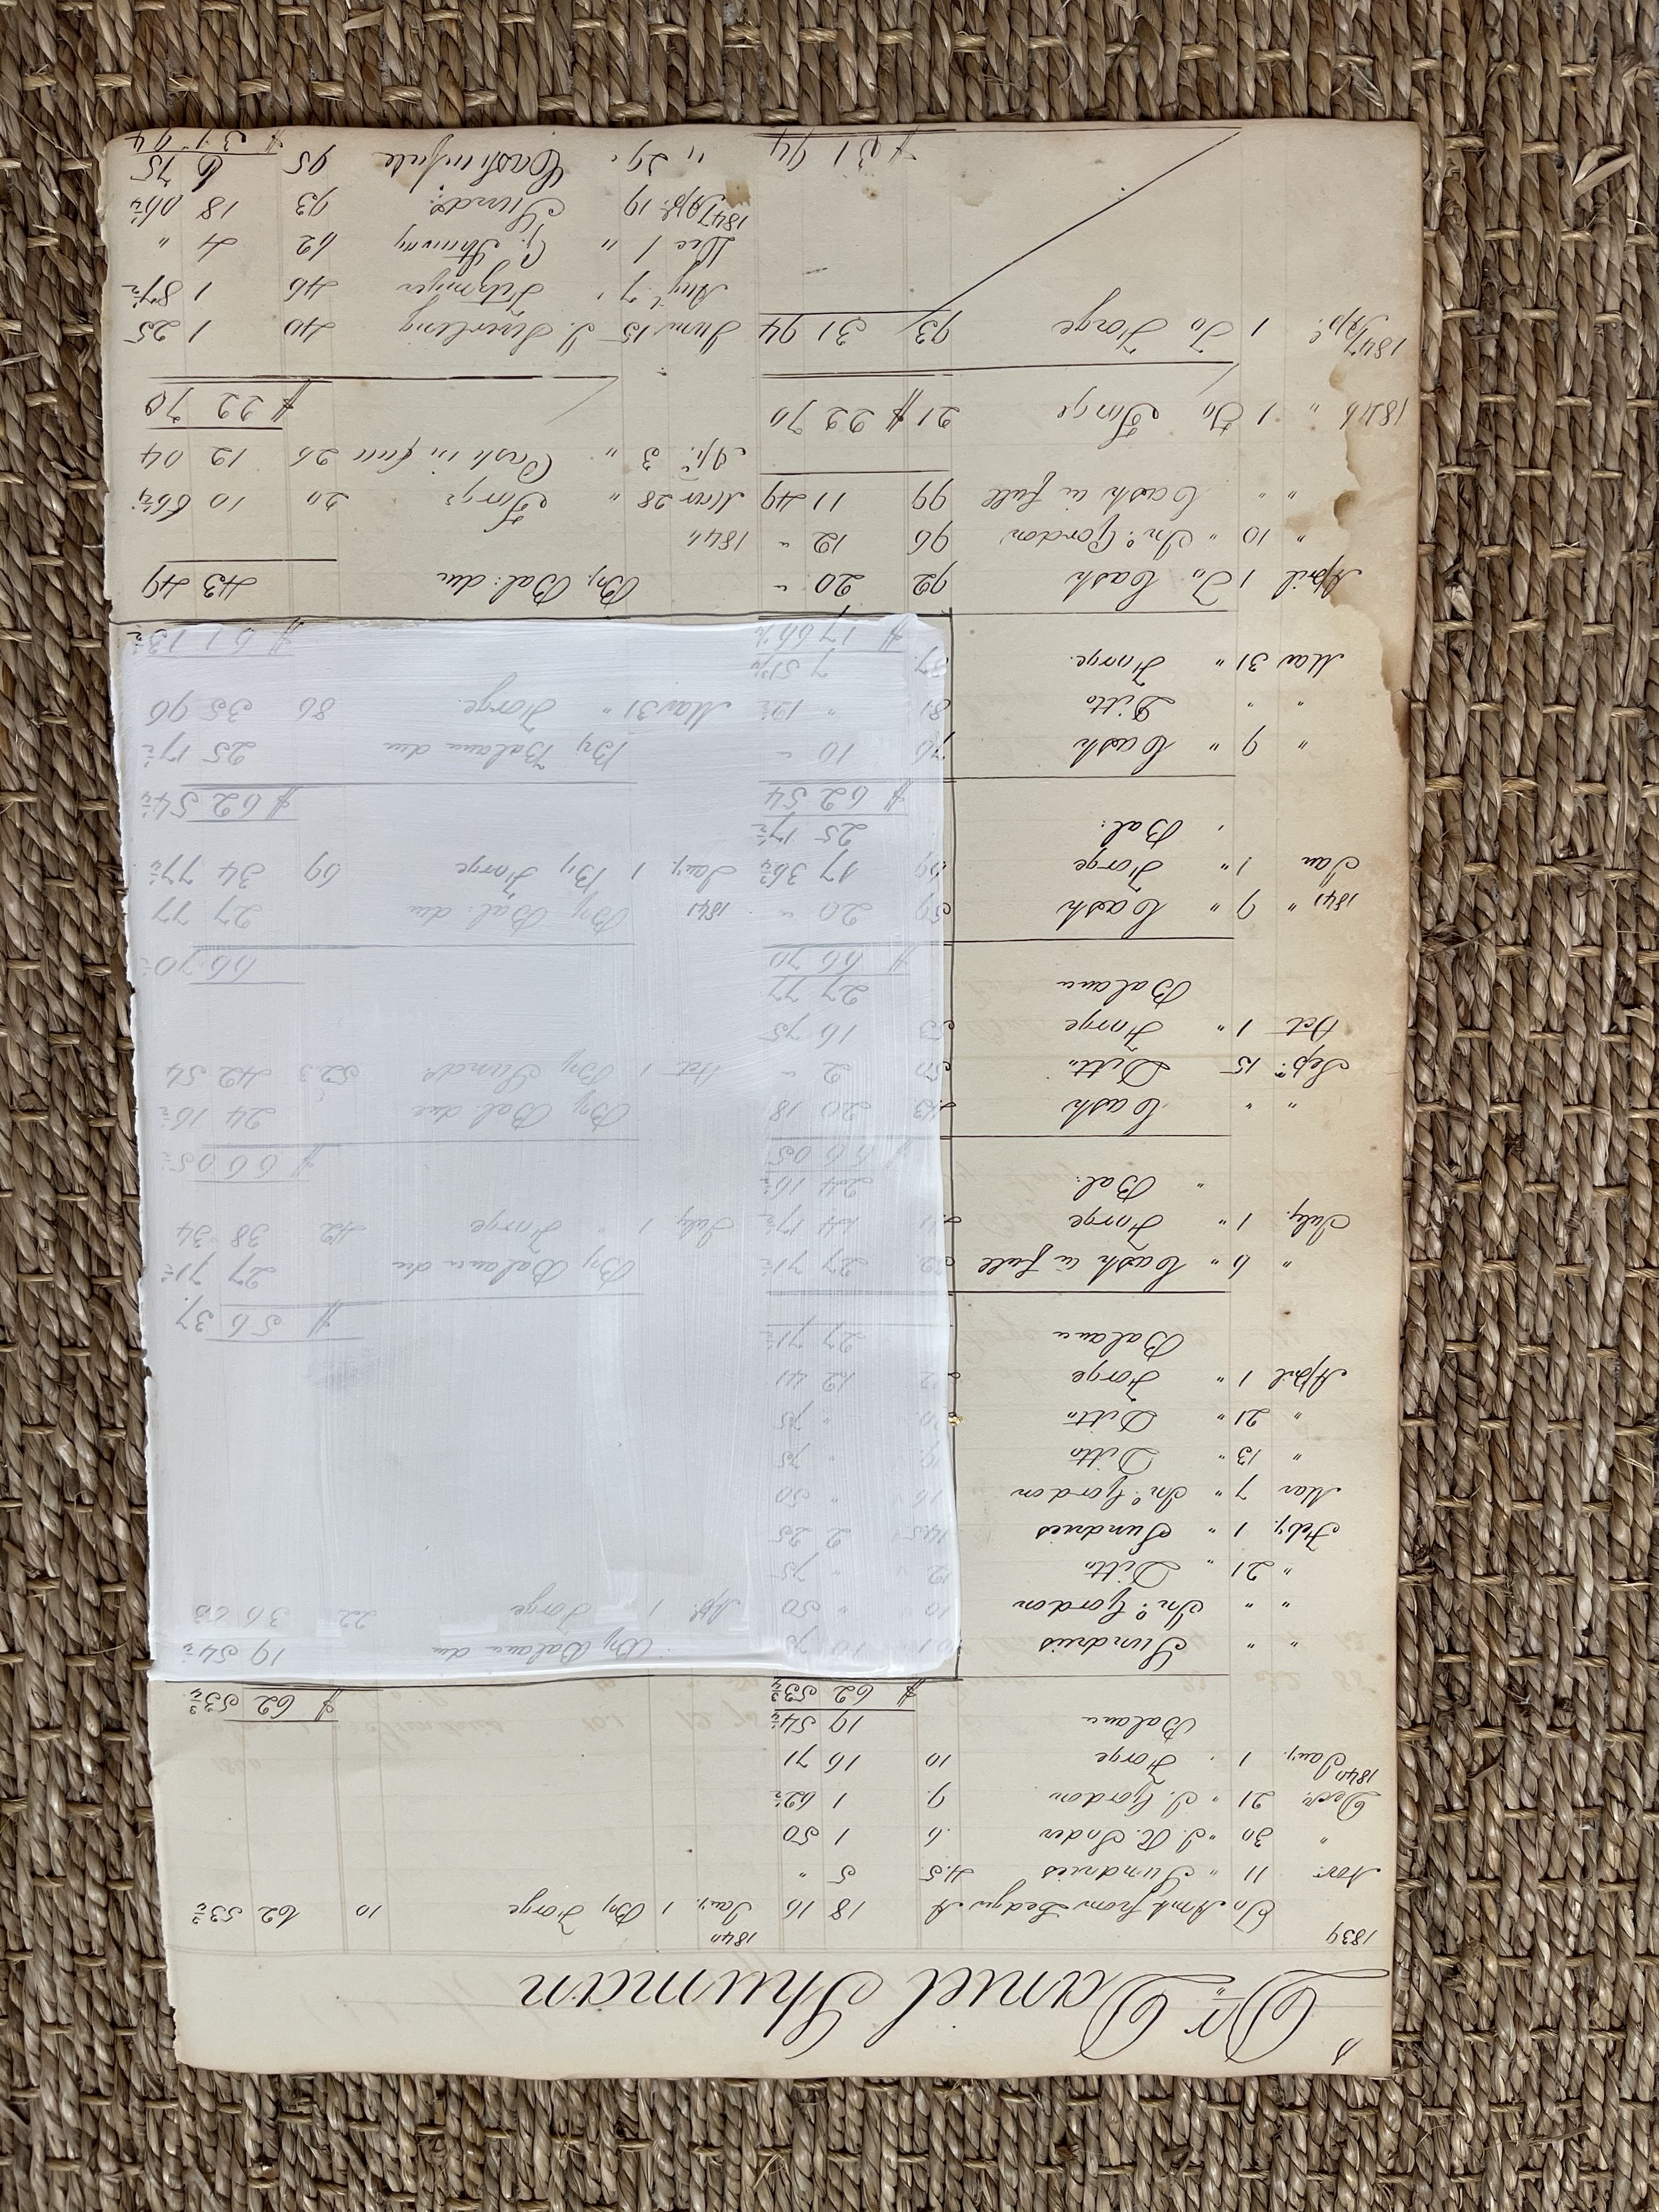 Dr Daniel Shuman
1839 1840
To Amt from Ledger A 18 16 Jany. 1 By Forge 10 62 53¾
Nov. 11 " Sundries 4.5 5 "
" 30 " J. R. 6 1 50
Decr. 21 " J. Gordon 9 1 62½
1840
Jany. 1 " Forge 10 16 71
Balance 19 54¼
$ 62 53¾ $ 62 53¾
" " Sundries By Balance due 19 54¼
" " Jno. Gordon 10 " 50 Apl. 1 Forge 22 36
" 21 " Ditto 12 " 75
Feby. 1 " Sundries 14.5 2 25
Mar 7 " Jno. Gordon 16 " 50
" 13 " Ditto " 75
" 21 " Ditto " 75
April 1 " Forge 12 41
Balance 27 71½
$ 56 37
" 6 " Cash in full 27 71½ By Balance due 27 71½
July. 1 " Forge 14 17½ July 1 " Forge 42 38 34
" Bal: 24 16½
$ 66 05 $ 66 05½
" " Cash 20 18 By Bal: due 24 16½
Sepr. 15 Ditto 50 2 " Oct 1 By Sunds 52.3 42 54
Oct 1 " Forge 53 16 75
Balance 27 77
$ 66 70 66 70½
1841 " 9 " Cash 59 20 " 1841 By Bal: due 27 77
Jan 1 " Forge 69 17 36¾ Jany. 1 By Forge 69 34 77½
" Bal: 25 17½
$ 62 54 $ 62 54½
" 9 " Cash 76 10 " By Balance due 25 17½
" " Ditto 81 " 12½ Mar 31 " Forge. 86 35 96
Mar 31 " Forge. 87 7 51¼
$ 17 $ 61 13½
April 1 To Cash 92 20 " By Bal: due 43 49
" 10 " Jno. Gordon 96 12 " 1846
" " Cash in full 99 11 49 Mar 28 " Forge 20 10 66¼
Apr. 3 " Cash in full 25 12 04
1846 " 1 To Forge 21 $ 22 70 $ 22 70
1847
Apl. 1 To Forge 93 31 94 June 15 40 1 25
Augt. 7 " 46 1 87½
Dec 1 " 62 4 "
1847 Apl. 19 Sunds. 93 18 06¼
$ 31 94 " 29 " Cash in full 95 6 75
$ 31 94